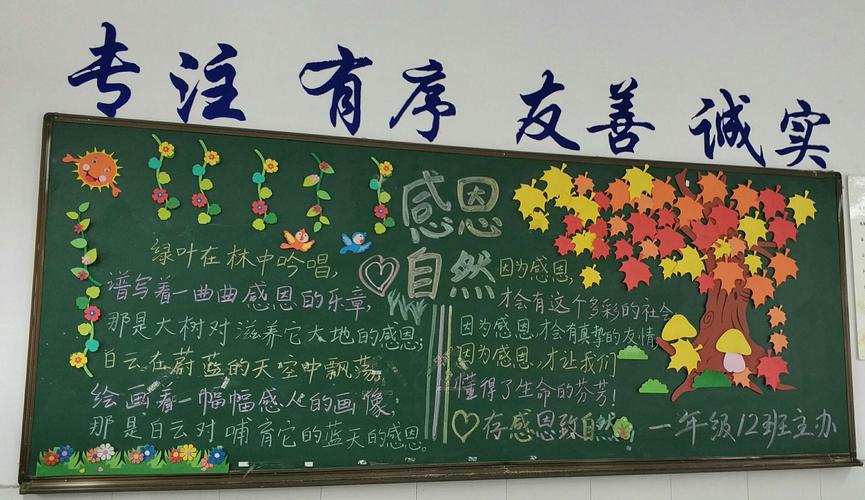 专注 有序 友善 诚实
感恩
自然
绿叶在林中吟唱，
谱写着一曲曲感恩的乐章，
那是大树对滋养它大地的感恩；
白云在蔚蓝的天空中飘荡，
绘画着一幅幅感人的画像，
那是白云对哺育它的蓝天的感恩。
因为感恩，
才会有这个多彩的社会
因为感恩，才会有真挚的友情
因为感恩，才让我们
懂得了生命的芬芳！
存感恩致自然
一年级12班主办